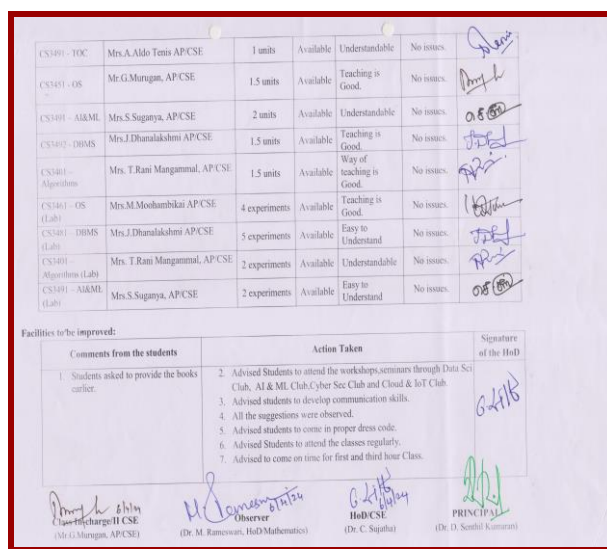 CS3491 - TOC Mrs.A.Aldo Tenis AP/CSE 1 units Available Understandable No issues.
CS3451 - OS Mr.G.Murugan, AP/CSE 1.5 units Available Teaching is Good. No issues.
CS3491 - AI&ML Mrs.S.Suganya, AP/CSE 2 units Available Understandable No issues.
CS3492 - DBMS Mrs.J.Dhanalakshmi AP/CSE 1.5 units Available Teaching is Good. No issues.
CS3401 - Algorithms Mrs. T.Rani Mangammal, AP/CSE 1.5 units Available Way of teaching is Good. No issues.
CS3461 - OS (Lab) Mrs.M.Moohambikai AP/CSE 4 experiments Available Teaching is Good. No issues.
CS3481 - DBMS (Lab) Mrs.J.Dhanalakshmi AP/CSE 5 experiments Available Easy to Understand No issues.
CS3401 - Algorithms (Lab) Mrs. T.Rani Mangammal, AP/CSE 2 experiments Available Understandable No issues.
CS3491 - AI&ML (Lab) Mrs.S.Suganya, AP/CSE 2 experiments Available Easy to Understand No issues.
Facilities to be improved:
Comments from the students Action Taken Signature of the HoD
1. Students asked to provide the books earlier.
2. Advised Students to attend the workshops,seminars through Data Sci
Club, AI & ML Club,Cyber Sec Club and Cloud & IoT Club.
3. Advised students to develop communication skills.
4. All the suggestions were observed.
5. Advised students to come in proper dress code.
6. Advised Students to attend the classes regularly.
7. Advised to come on time for first and third hour Class.
6/4/24 6/4/24
Class Incharge/II CSE Observer HoD/CSE PRINCIPAL
(Mr.G.Murugan, AP/CSE) (Dr. M. Rameswari, HoD/Mathematics) (Dr. C. Sujatha) (Dr. D. Senthil Kumaran)